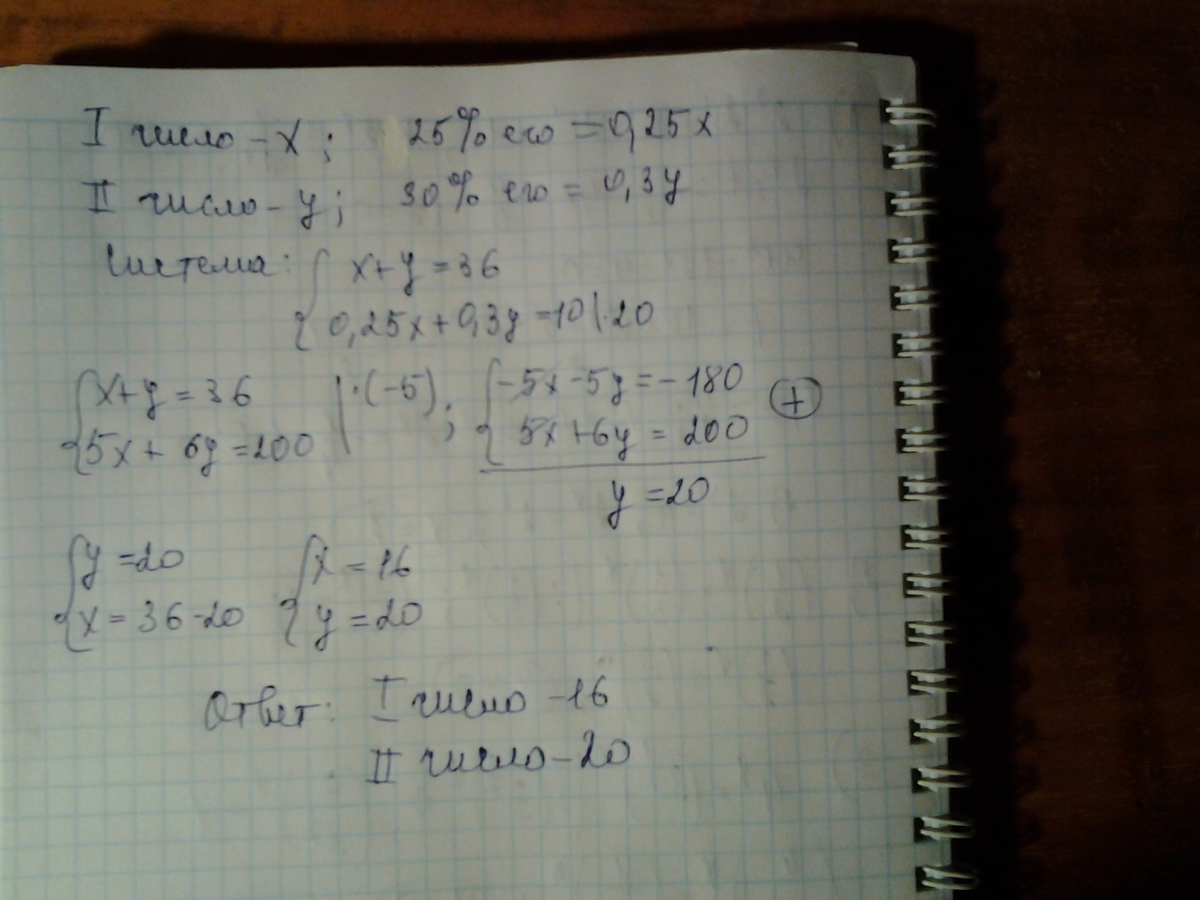 I число - x ; 25% его = 0,25x
II число - y ; 30% его = 0,3y
Система: { x+y = 36
0,25x + 0,3y = 10 | · 20
{ x+y = 36 | · (-5) ; { -5x - 5y = - 180 (+)
5x + 6y = 200 5x + 6y = 200
y = 20
{ y = 20 { x = 16
x = 36 - 20 y = 20
Ответ: I число - 16
II число - 20